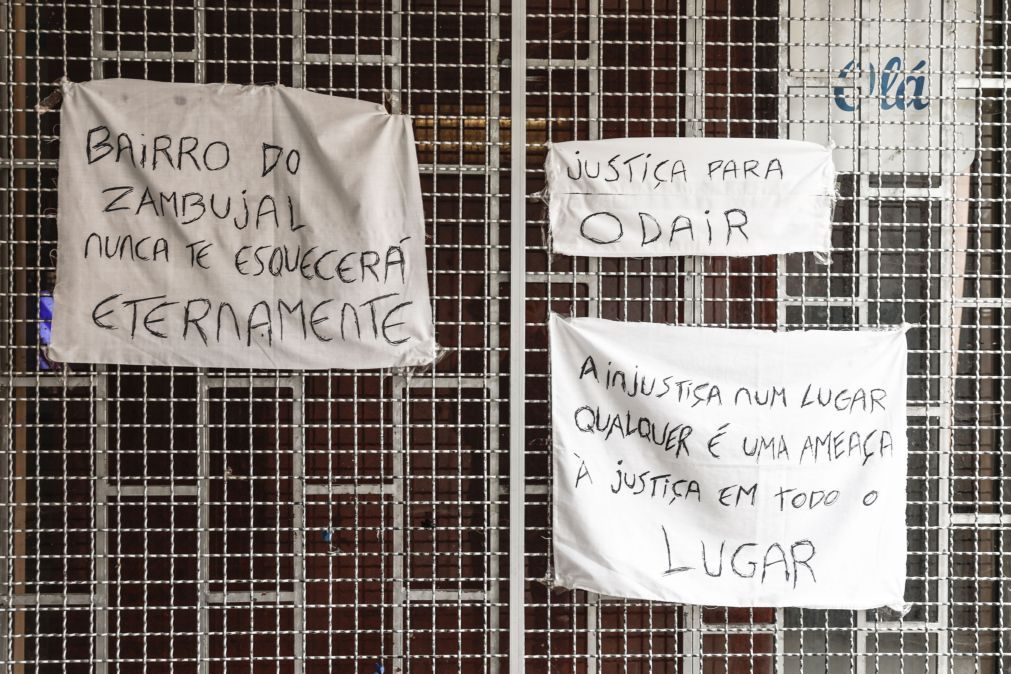 BAIRRO DO
ZAMBUJAL
NUNCA TE ESQUECERÁ
ETERNAMENTE
JUSTIÇA PARA
ODAIR
A INJUSTIÇA NUM LUGAR
QUALQUER É UMA AMEAÇA
À JUSTIÇA EM TODO O
LUGAR
Olá